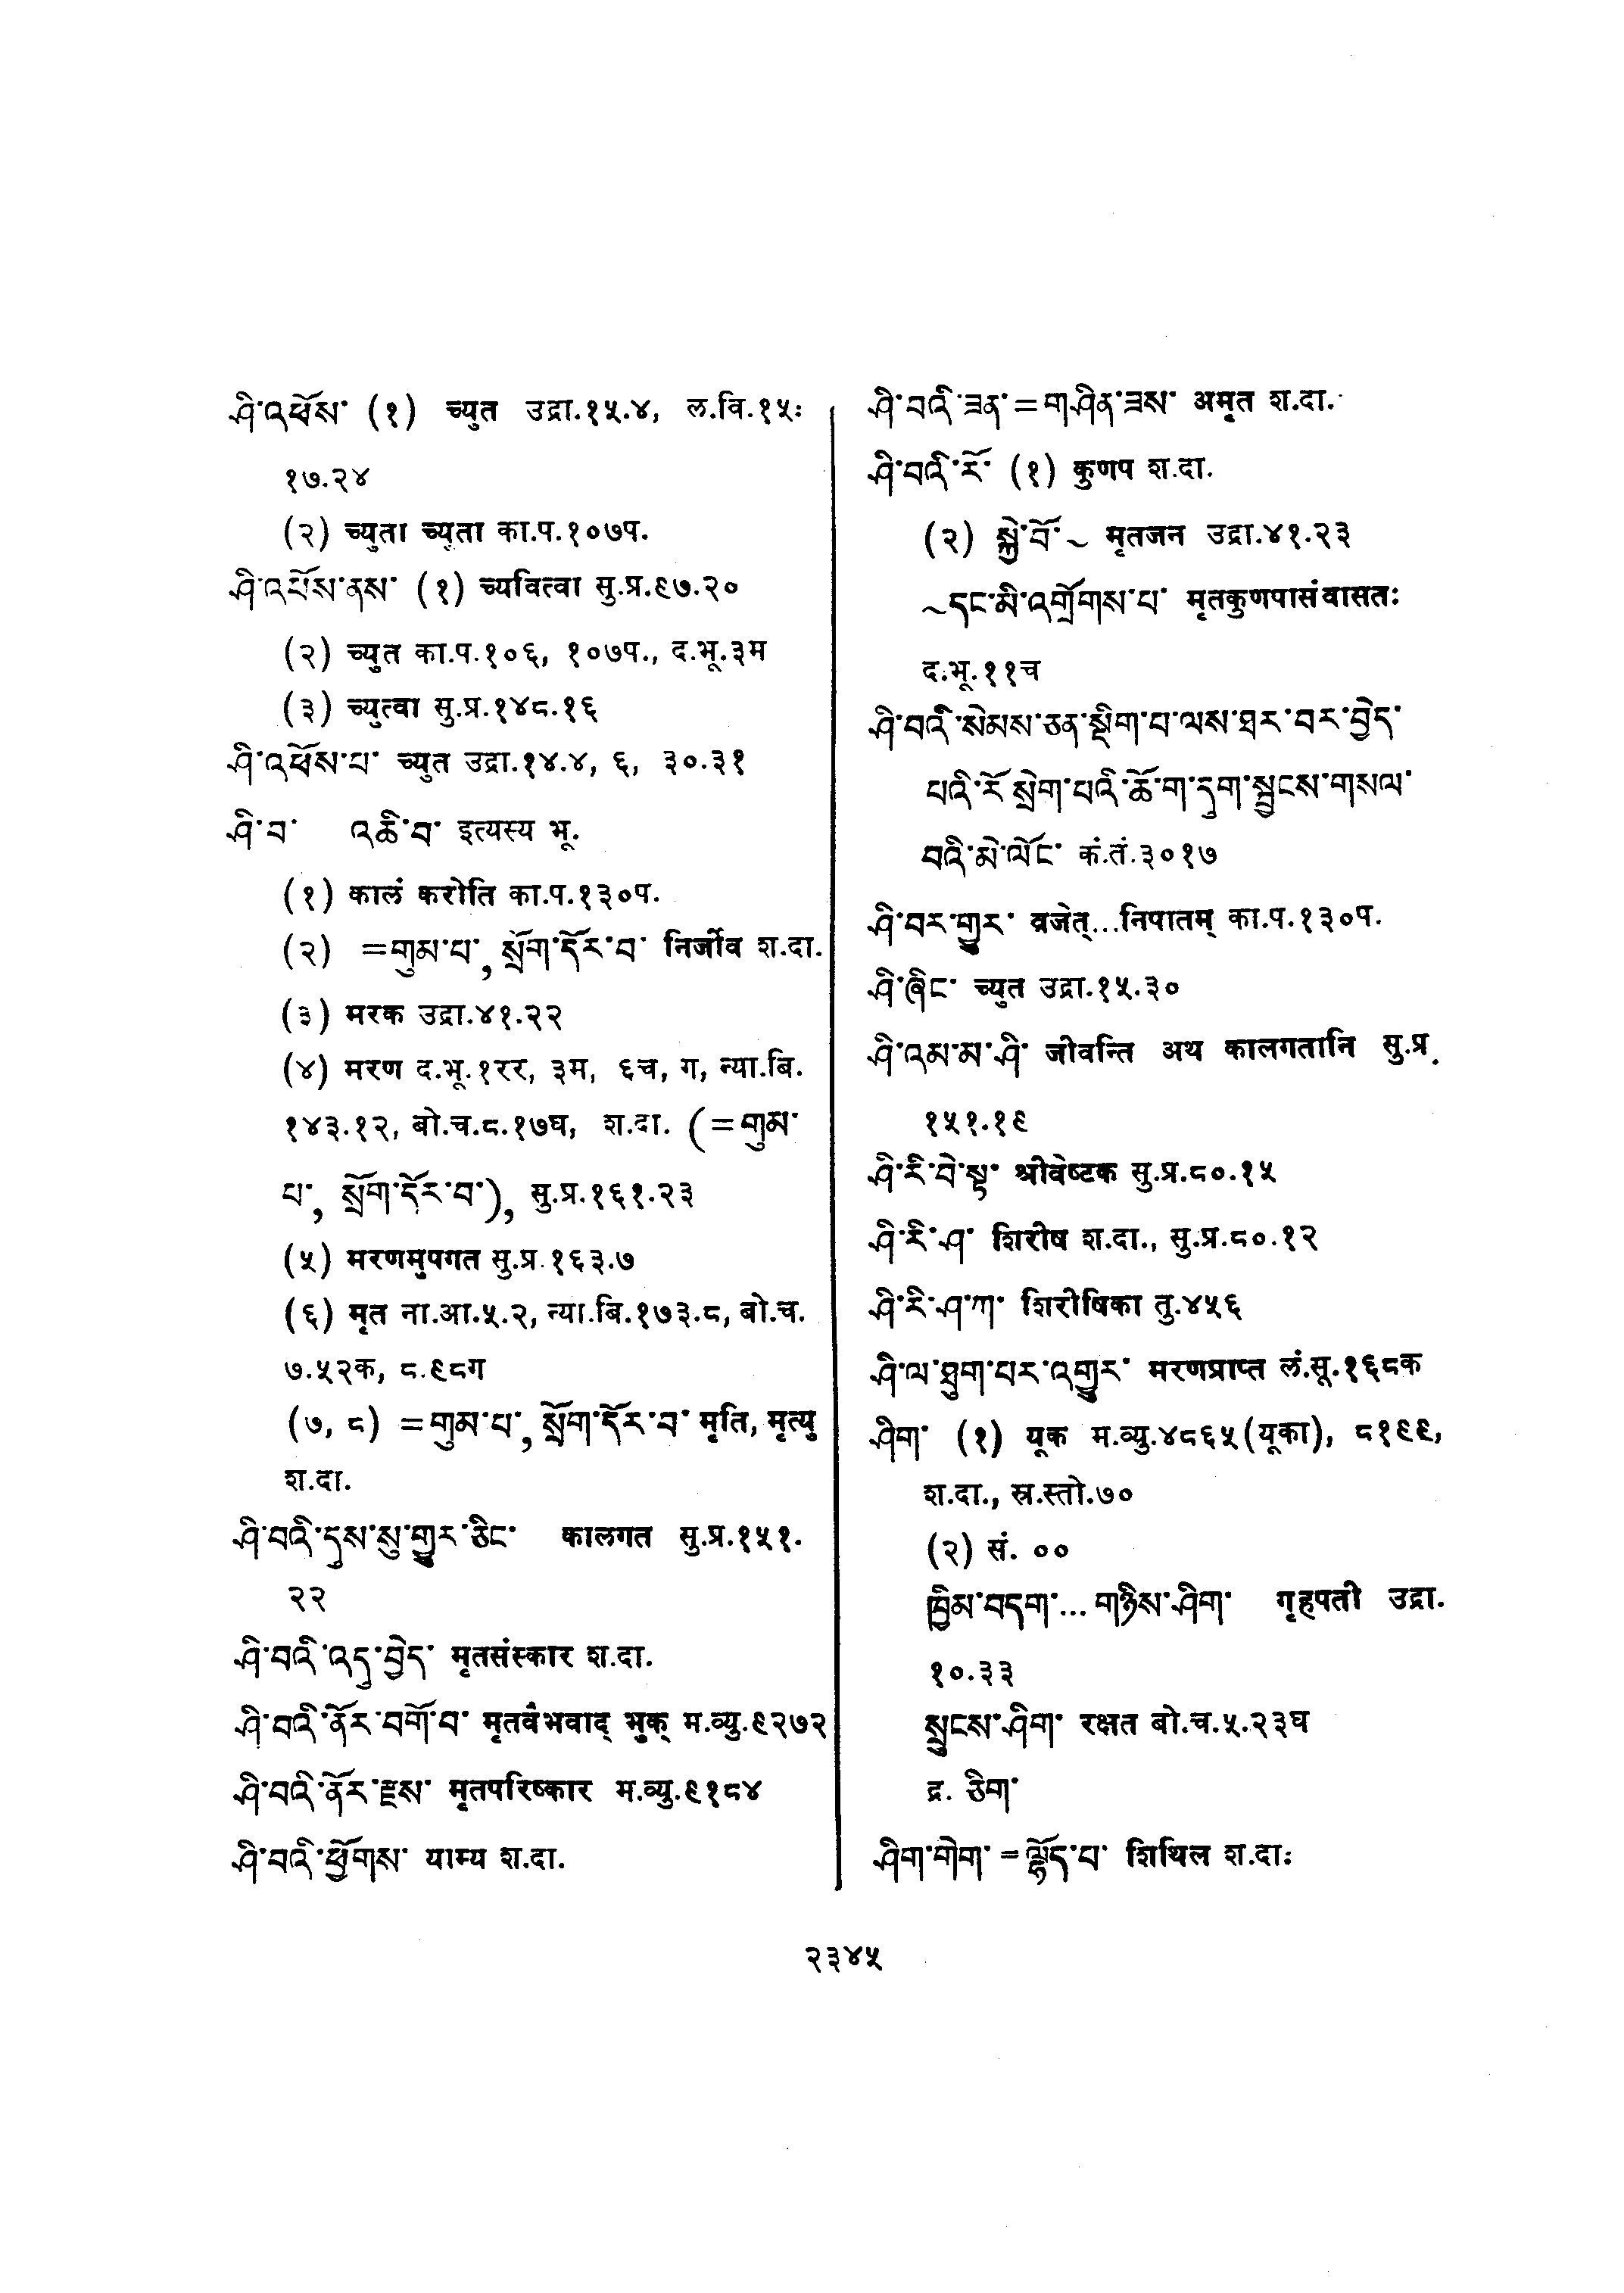 ཤི་འཕོས་ (१) च्युत उद्रा.१५.४, ल.वि.१५ः
१७.२४
(२) च्युता च्युता का.प.१०७प.
ཤི་འཔོས་ནས་ (१) च्यवित्वा सु.प्र.९७.२०
(२) च्युत का.प.१०६, १०७प., द.भू.३म
(३) च्युत्वा सु.प्र.१४८.१६
ཤི་འཕོས་པ་ च्युत उद्रा.१४.४, ६, ३०.३१
ཤི་བ་ འཆི་བ་ इत्यस्य भू.
(१) कालं करोति का.प.१३०प.
(२) =གུམ་པ་, སྲོག་དོར་བ་ निर्जीव श.दा.
(३) मरक उद्रा.४१.२२
(४) मरण द.भू.१रर, ३म, ६च, ग, न्या.बि.
१४३.१२, बो.च.८.१७घ, श.दा. (=གུམ་
པ་, སྲོག་དོར་བ་), सु.प्र.१६१.२३
(५) मरणमुपगत सु.प्र.१६३.७
(६) मृत ना.आ.५.२, न्या.बि.१७३.८, बो.च.
७.५२क, ८.९८ग
(७, ८) =གུམ་པ་, སྲོག་དོར་བ་ मृति, मृत्यु
श.दा.
ཤི་བའི་དུས་སུ་གྱུར་ཅིང་ कालगत सु.प्र.१५१.
२२
ཤི་བའི་འདུ་བྱེད་ मृतसंस्कार श.दा.
ཤི་བའི་ནོར་བགོ་བ་ मृतवैभवाद् भुक् म.व्यु.९२७२
ཤི་བའི་ནོར་རྫས་ मृतपरिष्कार म.व्यु.९१८४
ཤི་བའི་ཕྱོགས་ याम्य श.दा.
ཤི་བའི་ཟན་=གཤིན་ཟས་ अमृत श.दा.
ཤི་བའི་རོ་ (१) कुणप श.दा.
(२) སྐྱེ་བོ་~ मृतजन उद्रा.४१.२३
~དང་མི་འགྲོགས་པ་ मृतकुणपासंवासतः
द.भू.११च
ཤི་བའི་སེམས་ཅན་སྡིག་པ་ལས་ཐར་བར་བྱེད་
པའི་རོ་སྲེག་པའི་ཆོ་ག་དུག་སྦྲངས་གསལ་
བའི་མེ་ལོང་ कं.तं.३०१७
ཤི་བར་གྱུར་ व्रजेत्...निपातम् का.प.१३०प.
ཤི་ཞིང་ च्युत उद्रा.१५.३०
ཤི་འམ་མ་ཤི་ जीवन्ति अथ कालगतानि सु.प्र.
१५१.१९
ཤི་རི་བེ་སྟ་ श्रीवेष्टक सु.प्र.८०.१५
ཤི་རི་ཤ་ शिरीष श.दा., सु.प्र.८०.१२
ཤི་རི་ཤ་ཀ་ शिरीषिका तु.४५६
ཤི་ལ་ཐུག་པར་འགྱུར་ मरणप्राप्त लं.सू.१६८क
ཤིག་ (१) यूक म.व्यु.४८६५(यूका), ८१९९,
श.दा., स्र.स्तो.७०
(२) सं. ००
ཁྱིམ་བདག་...གཉིས་ཤིག་ गृहपती उद्रा.
१०.३३
སྲུངས་ཤིག་ रक्षत बो.च.५.२३घ
द्र. ཅིག་
ཤིག་གེག་=ལྷོད་པ་ शिथिल श.दाः
२३४५